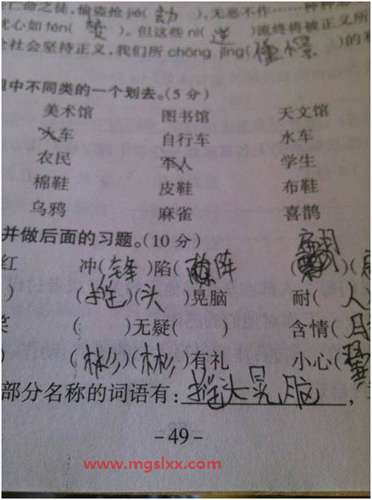 亡命之徒,偷盗抢jié(劫),无恶不作
忧心如fén(焚)。但这些nì(逆)流终将被正义所
社会坚持正义,我们所chōng jǐng(憧憬)的
中不同类的一个划去。(5分)
美术馆 图书馆 天文馆
火车 自行车 水车
农民 军人 学生
棉鞋 皮鞋 布鞋
乌鸦 麻雀 喜鹊
并做后面的习题。(10分)
红 冲(锋)陷(阵) (
) (摇)(头)晃脑 耐(人
笑 ( )无疑( ) 含情(
) (彬)(彬)有礼 小心(
部分名称的词语有:摇头晃脑,
-49-
www.mgslxx.com